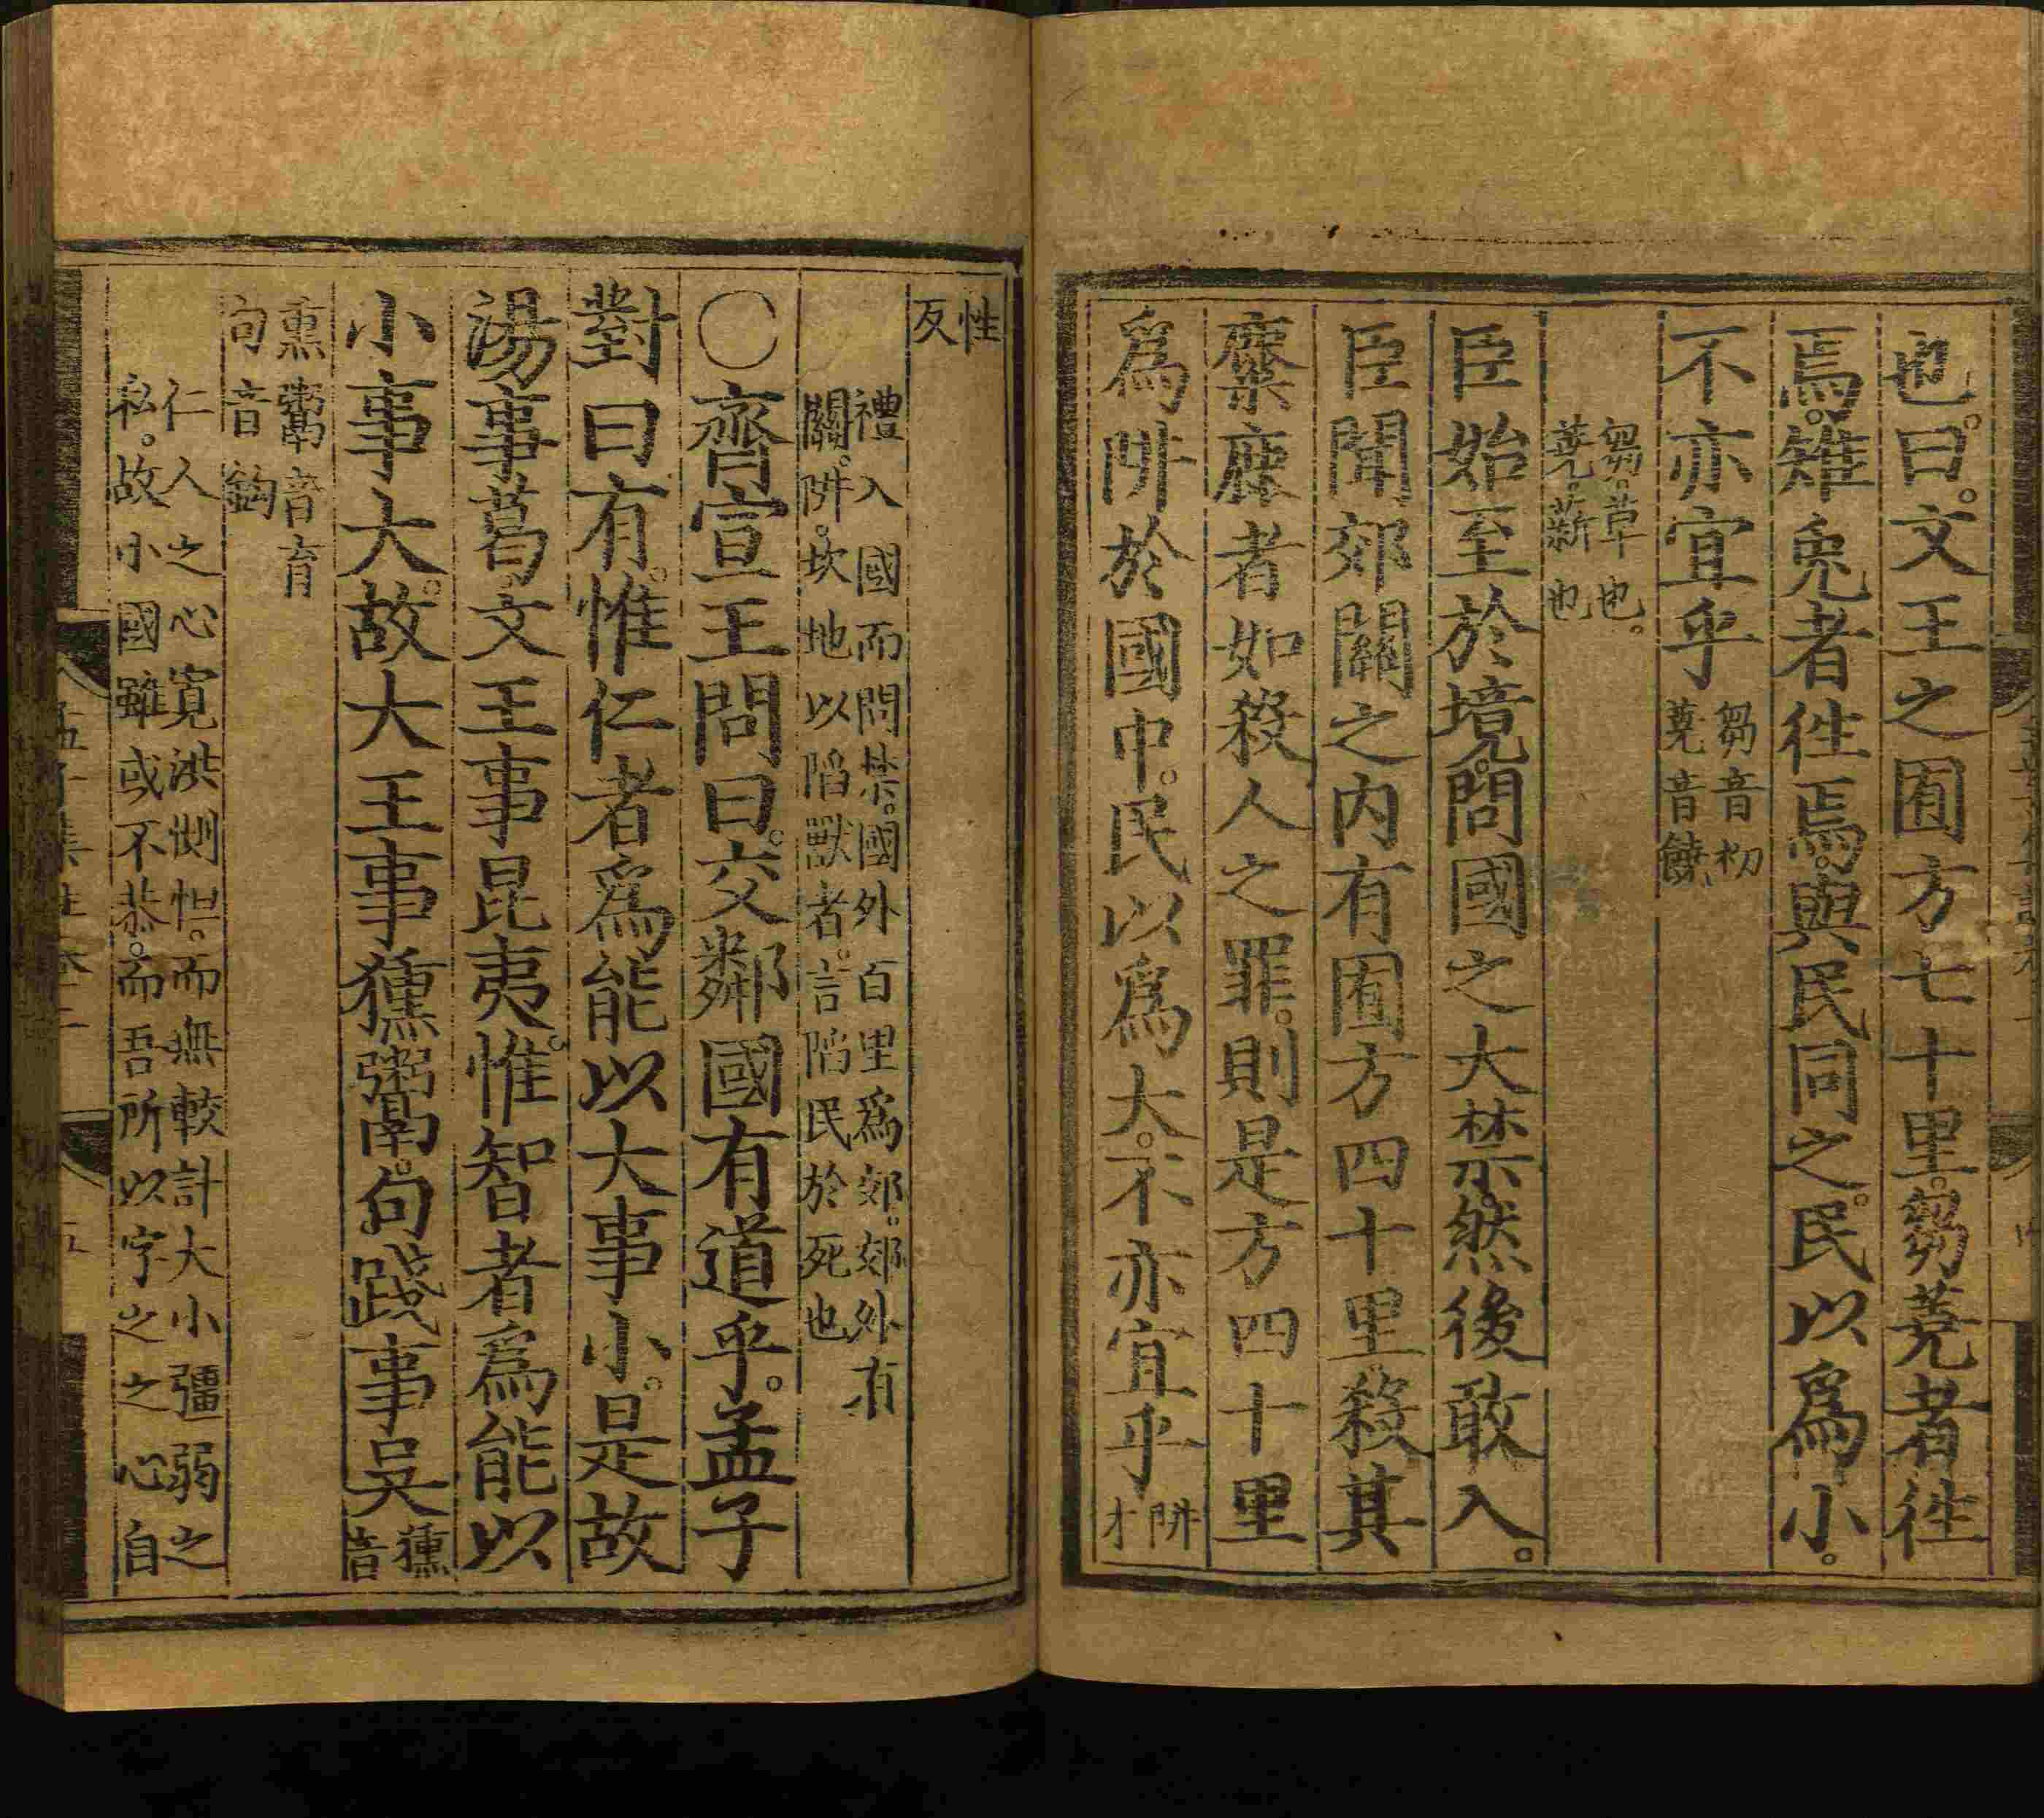 也。曰。文王之囿方七十里。芻蕘者往
焉。雉兔者往焉。與民同之。民以爲小。
不亦宜乎芻音初
蕘音饒
芻。草也。
蕘。薪也
臣始至於境。問國之大禁。然後敢入。
臣聞郊關之内有囿方四十里。殺其
麋鹿者如殺人之罪。則是方四十里
爲阱於國中。民以爲大。不亦宜乎阱
才
性
反
禮入國而問禁。國外百里爲郊。郊外有
關。阱。坎地以陷獸者。言陷民於死也
○齊宣王問曰。交鄰國有道乎。孟子
對曰有。惟仁者爲能以大事小。是故
湯事葛。文王事昆夷。惟智者爲能以
小事大。故大王事獯鬻。句踐事吳獯
音
熏鬻音育
句音鉤
仁人之心寬洪惻怛。而無較計大小彊弱之
私。故小國雖或不恭。而吾所以字之之心自